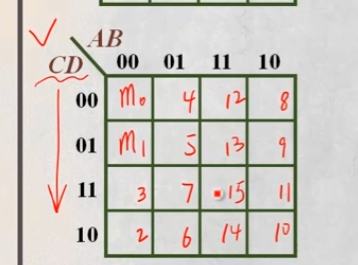 AB
CD 00 01 11 10
00 m₀ 4 12 8
01 m₁ 5 13 9
11 3 7 15 11
10 2 6 14 10